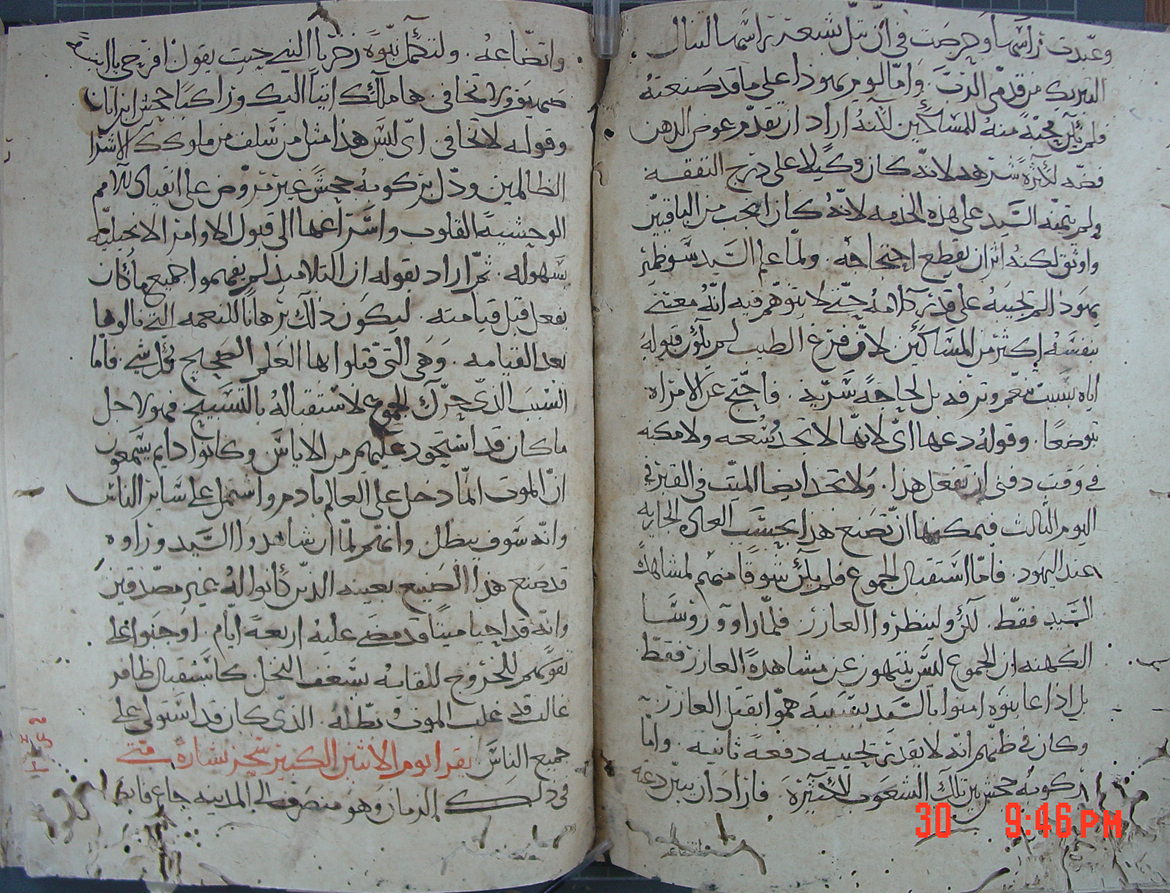 وعبدت راسها وحرصت في ان تبل شعر راسها لتنال
التبريك من قدمي الرب وامّا لوم يهودا على ما قد صنعته
فلم يكن محبة منه للمساكين لكنه اراد ان تقدم عوض الدهن
فضه لكثرة شرهه لانه كان وكيلا على درج النفقه
ولم يقمه السيد على هذه الخدمه لانه كان انجب من الباقيين
واوثق لكنه اثر ان يقطع احتجاجه ولما علم السيد سو ضمير
يهودا لم تجبه على قدر كلامه حتى لا يتوهم فيه انه معتني
بنفسه اكثر من المساكين لان فرغ الطيب لم يكن قبوله
اياه بسبب تنعم وترفه بل لحاجة شريه فاحتج عن الامراه
بتوضعا وقوله دعها اى لانها لا تجد سعه ولا مكه
في وقت دفني ان تفعل هذا ولا تجد ايضا الميت في القبر في
اليوم الثالث فيمكنها ان تصنع هذا بحسب العاده الجاريه
عند اليهود فامّا استقبال الجموع فلم يكن شوقا منهم لمشاهدة
السيد فقط لكن ولينظروا العازر فلما راوو روسا
الكهنه ان الجموع ليس ينتهون عن مشاهدة العازر فقط
بل اذا عاينوه امنوا بالسيد بنفسه همّوا بقتل العازر
وكان في ظنهم انه لا يقدر يحييه دفعة ثانيه وامّا
ركوبه جحش بين تلك الشعوب الكثيرة فاراد ان يبين دعه
30 9:46PM
واتضاعه ولتكمل نبوة زخريا النبي حيث يقول افرحي يا ابنت
صهيون ولا تخافي هاملكك اتيا اليك وراكبا جحش ابن اتان
وقوله لا تخافي اى ليس هذا مثل من سلف من ملوكك الاشرار
الظالمين ودل بركوبه جحش غير مروض على انقياد الامم
الوحشية القلوب واسراعها الى قبول الاوامر الانجيليه
بسهوله ثم اراد بقوله ان التلاميذ لم يفهموا جميع ما كان
يفعل قبل قيامته ليكون ذلك برهانا للنعمه التي نالوها
بعد القيامه وهي التي قبلوا بها العلم الصحيح بكل شي فامّا
السبب الذي حرك الجموع لاستقباله بالتسبيح فهو لاجل
ما كان قد استحود عليهم من الاياس وكانوا دايم يسمعون
ان الموت انما دخل على العالم بادم واشتمل على ساير الناس
وانه سوف يبطل وانهم لما ان شاهدوا السيد وراوه
قد صنع هذا الصنيع بعينه الذين كانوا له غير مصدقين
وانه قد احيا ميتا قد مضى عليه اربعة ايام اوجبوا على
نفوسهم للخروج للقايه بسعف النخل كاستقبال ظافر
غالب قد غلب الموت وبطله الذي كان قد استولى على
جميع الناس يقرا يوم الاثنين الكبير سحر بشارة متى
في ذلك الزمان وهو منصرف الى المدينه جاع فابصر